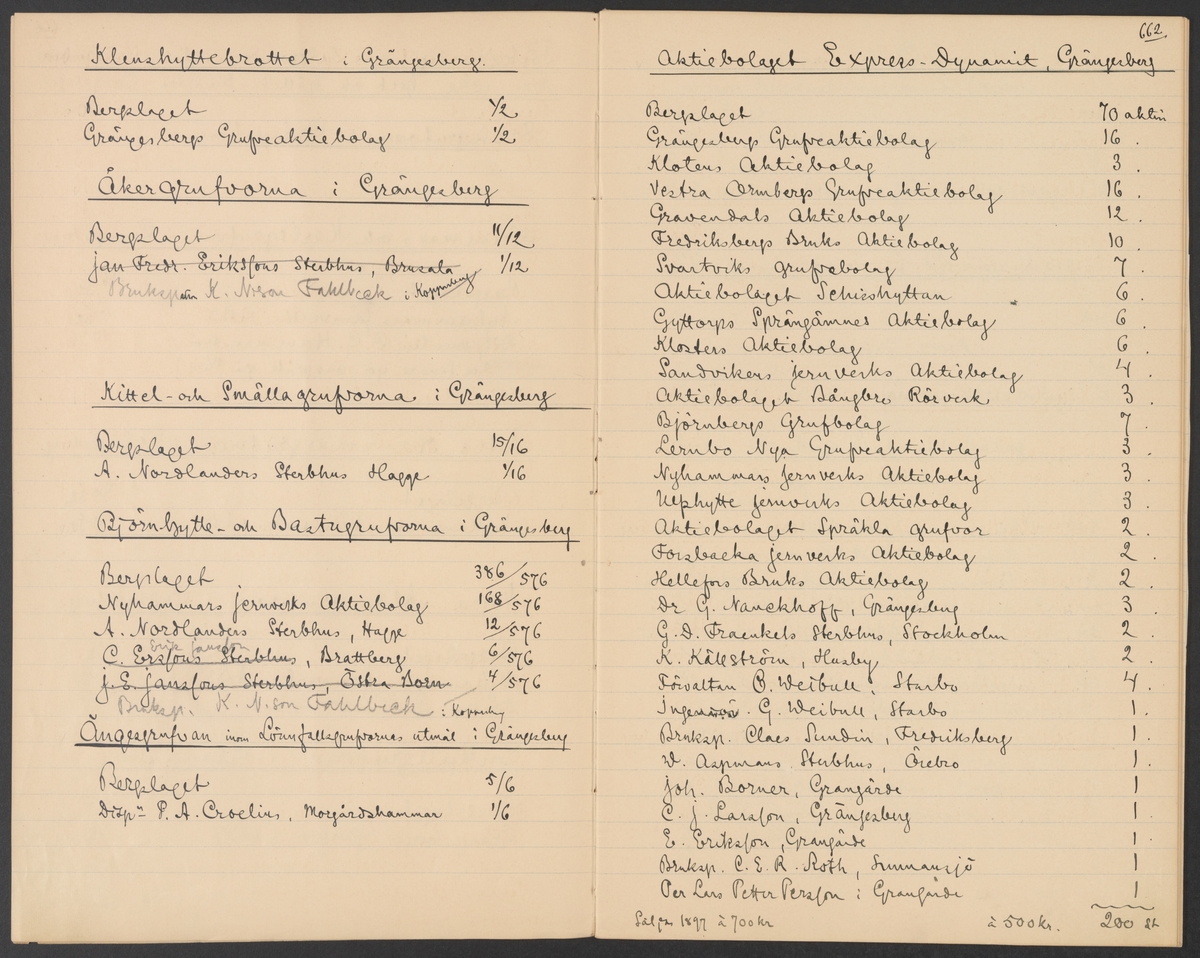 Klenshyttebrottet i Grängesberg.
Bergslaget 1/2
Grängesbergs Grufveaktiebolag 1/2
Åkergrufvorna i Grängesberg
Bergslaget 11/12
Jan Fredr. Eriksons Sterbhus, Brusala 1/12
Bruksp. K. N:son Fahlbeck i Kopparberg
Kittel- och Smällagrufvorna i Grängesberg
Bergslaget 15/16
A. Nordlanders Sterbhus Hagge 1/16
Björnhytte- och Bastugrufvorna i Grängesberg
Bergslaget 386/576
Nyhammars Jernverks Aktiebolag 168/576
A. Nordlanders Sterbhus, Hagge 12/576
Erik Jansson
C. Ersons Sterbhus, Brattberg 6/576
J. E. Jansons Sterbhus, Östra Born 4/576
Bruksp. K. N.son Fahlbeck i Kopparbg
Ängesgrufvan inom Lönnfallsgrufvornas utmål i Grängesberg
Bergslaget 5/6
Disp. P. A. Croelius, Morgårdshammar 1/6
662.
Aktiebolaget Express-Dynamit, Grängesberg
Bergslaget 70 aktier
Grängesbergs Grufveaktiebolag 16 .
Klotens Aktiebolag 3 .
Vestra Ormbergs Grufveaktiebolag 16 .
Gravendals Aktiebolag 12 .
Fredriksbergs Bruks Aktiebolag 10 .
Svartviks grufvebolag 7 .
Aktiebolaget Schisshyttan 6 .
Gyttorps Sprängämnes Aktiebolag 6 .
Klosters Aktiebolag 6 .
Sandvikens Jernverks Aktiebolag 4 .
Aktiebolaget Bångbro Rörverk 3 .
Björnbergs Grufbolag 7 .
Lernbo Nya Grufveaktiebolag 3 .
Nyhammars Jernverks Aktiebolag 3 .
Ulfshytte Jernverks Aktiebolag 3 .
Aktiebolaget Språkla grufvor 2 .
Forsbacka Jernverks Aktiebolag 2 .
Hellefors Bruks Aktiebolag 2 .
Dr G. Nauckhoff, Grängesberg 3 .
G. D. Fraenkels Sterbhus, Stockholm 2 .
K. Källström, Husby 2 .
Förvaltan O. Weibull, Starbo 4 .
Ingeniör G. Weibull, Starbo 1 .
Bruksp. Claes Sundin, Fredriksberg 1 .
W. Aspmans Sterbhus, Örebro 1 .
Joh. Borner, Grangärde 1
C. J. Larsson, Grängesberg 1 .
E. Eriksson, Grangärde 1 .
Bruksp. C. E. R. Roth, Sunnansjö 1
Per Lars Petter Persson i Grangärde 1
Såljes 1897 à 700 kr à 500 kr. 200 st